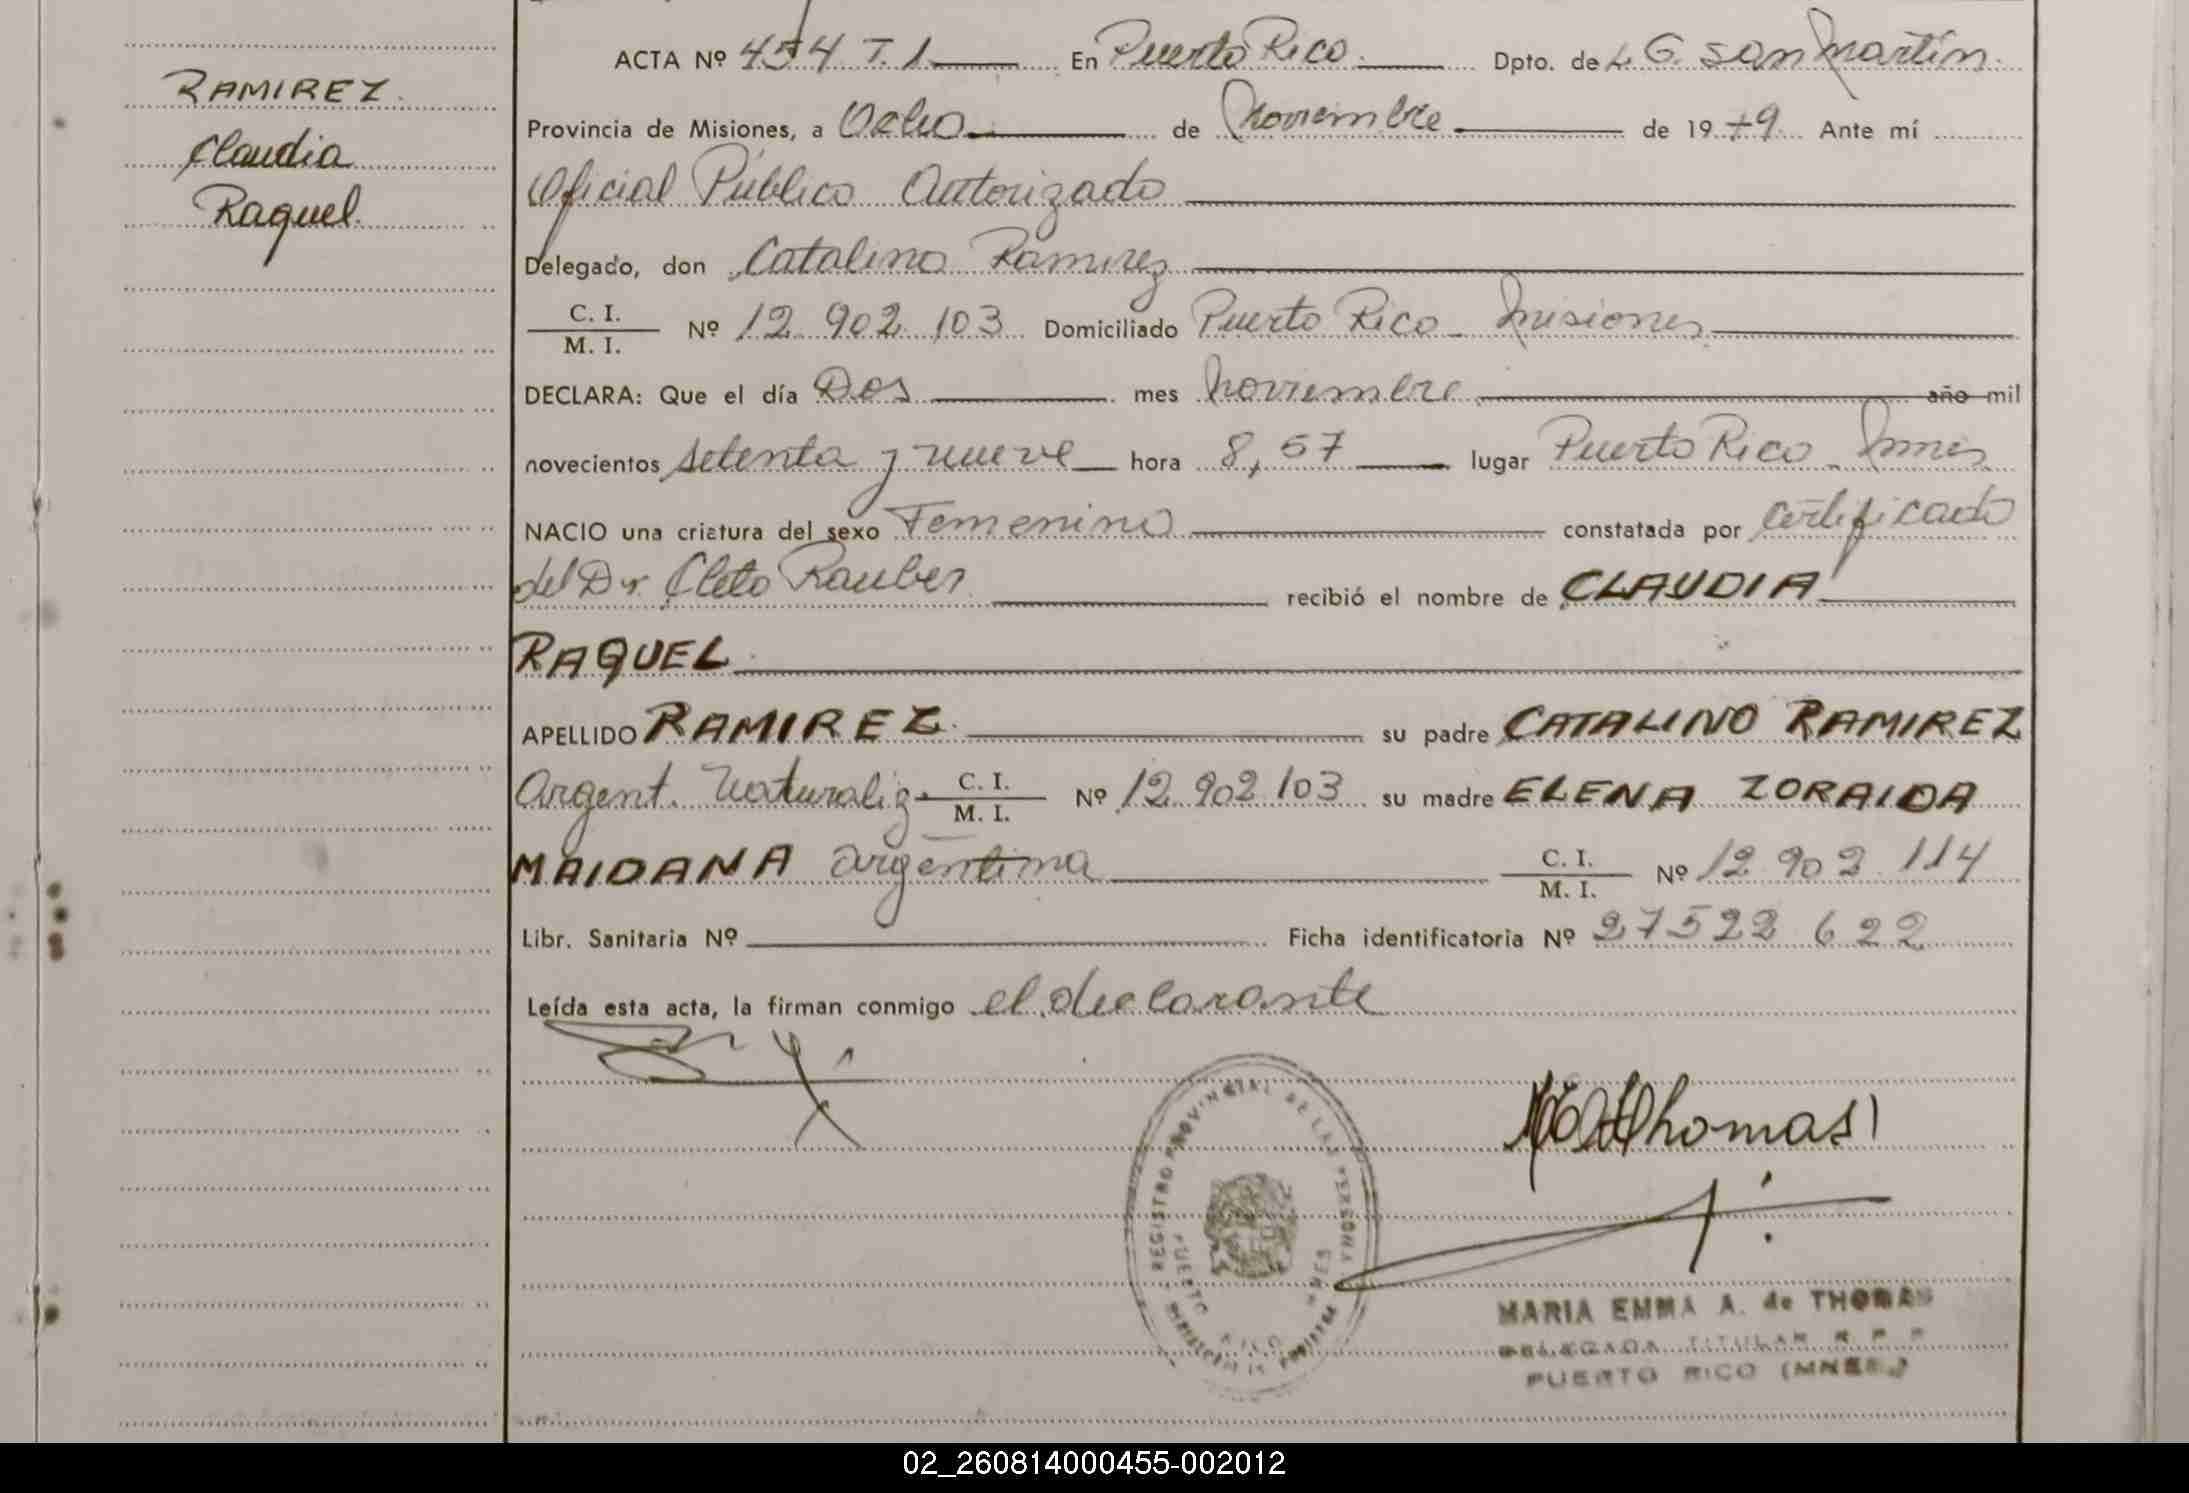 RAMIREZ
Claudia
Raquel.
ACTA Nº 454 T. 1 En Puerto Rico Dpto. de L. G. San Martín
Provincia de Misiones, a Ocho de Noviembre de 1979 Ante mí
Oficial Público Autorizado
Delegado, don Catalino Ramirez
C. I.
M. I. Nº 12.902.103 Domiciliado Puerto Rico - Misiones
DECLARA: Que el día Dos mes Noviembre año mil
novecientos setenta y nueve hora 8,57 lugar Puerto Rico - Mnes
NACIO una criatura del sexo Femenino constatada por certificado
del Dr. Cleto Rauber recibió el nombre de CLAUDIA
RAQUEL
APELLIDO RAMIREZ su padre CATALINO RAMIREZ
Argent. Naturaliz. C. I. M. I. Nº 12.902.103 su madre ELENA ZORAIDA
MAIDANA argentina C. I. M. I. Nº 12.902.114
Libr. Sanitaria Nº Ficha identificatoria Nº 27522622
Leída esta acta, la firman conmigo el declarante
REGISTRO PROVINCIAL DE LAS PERSONAS
PUERTO RICO MNES
MARIA EMMA A. de THOMAS
DELEGADA TITULAR R. P. P.
PUERTO RICO (MNES.)
02_260814000455-002012